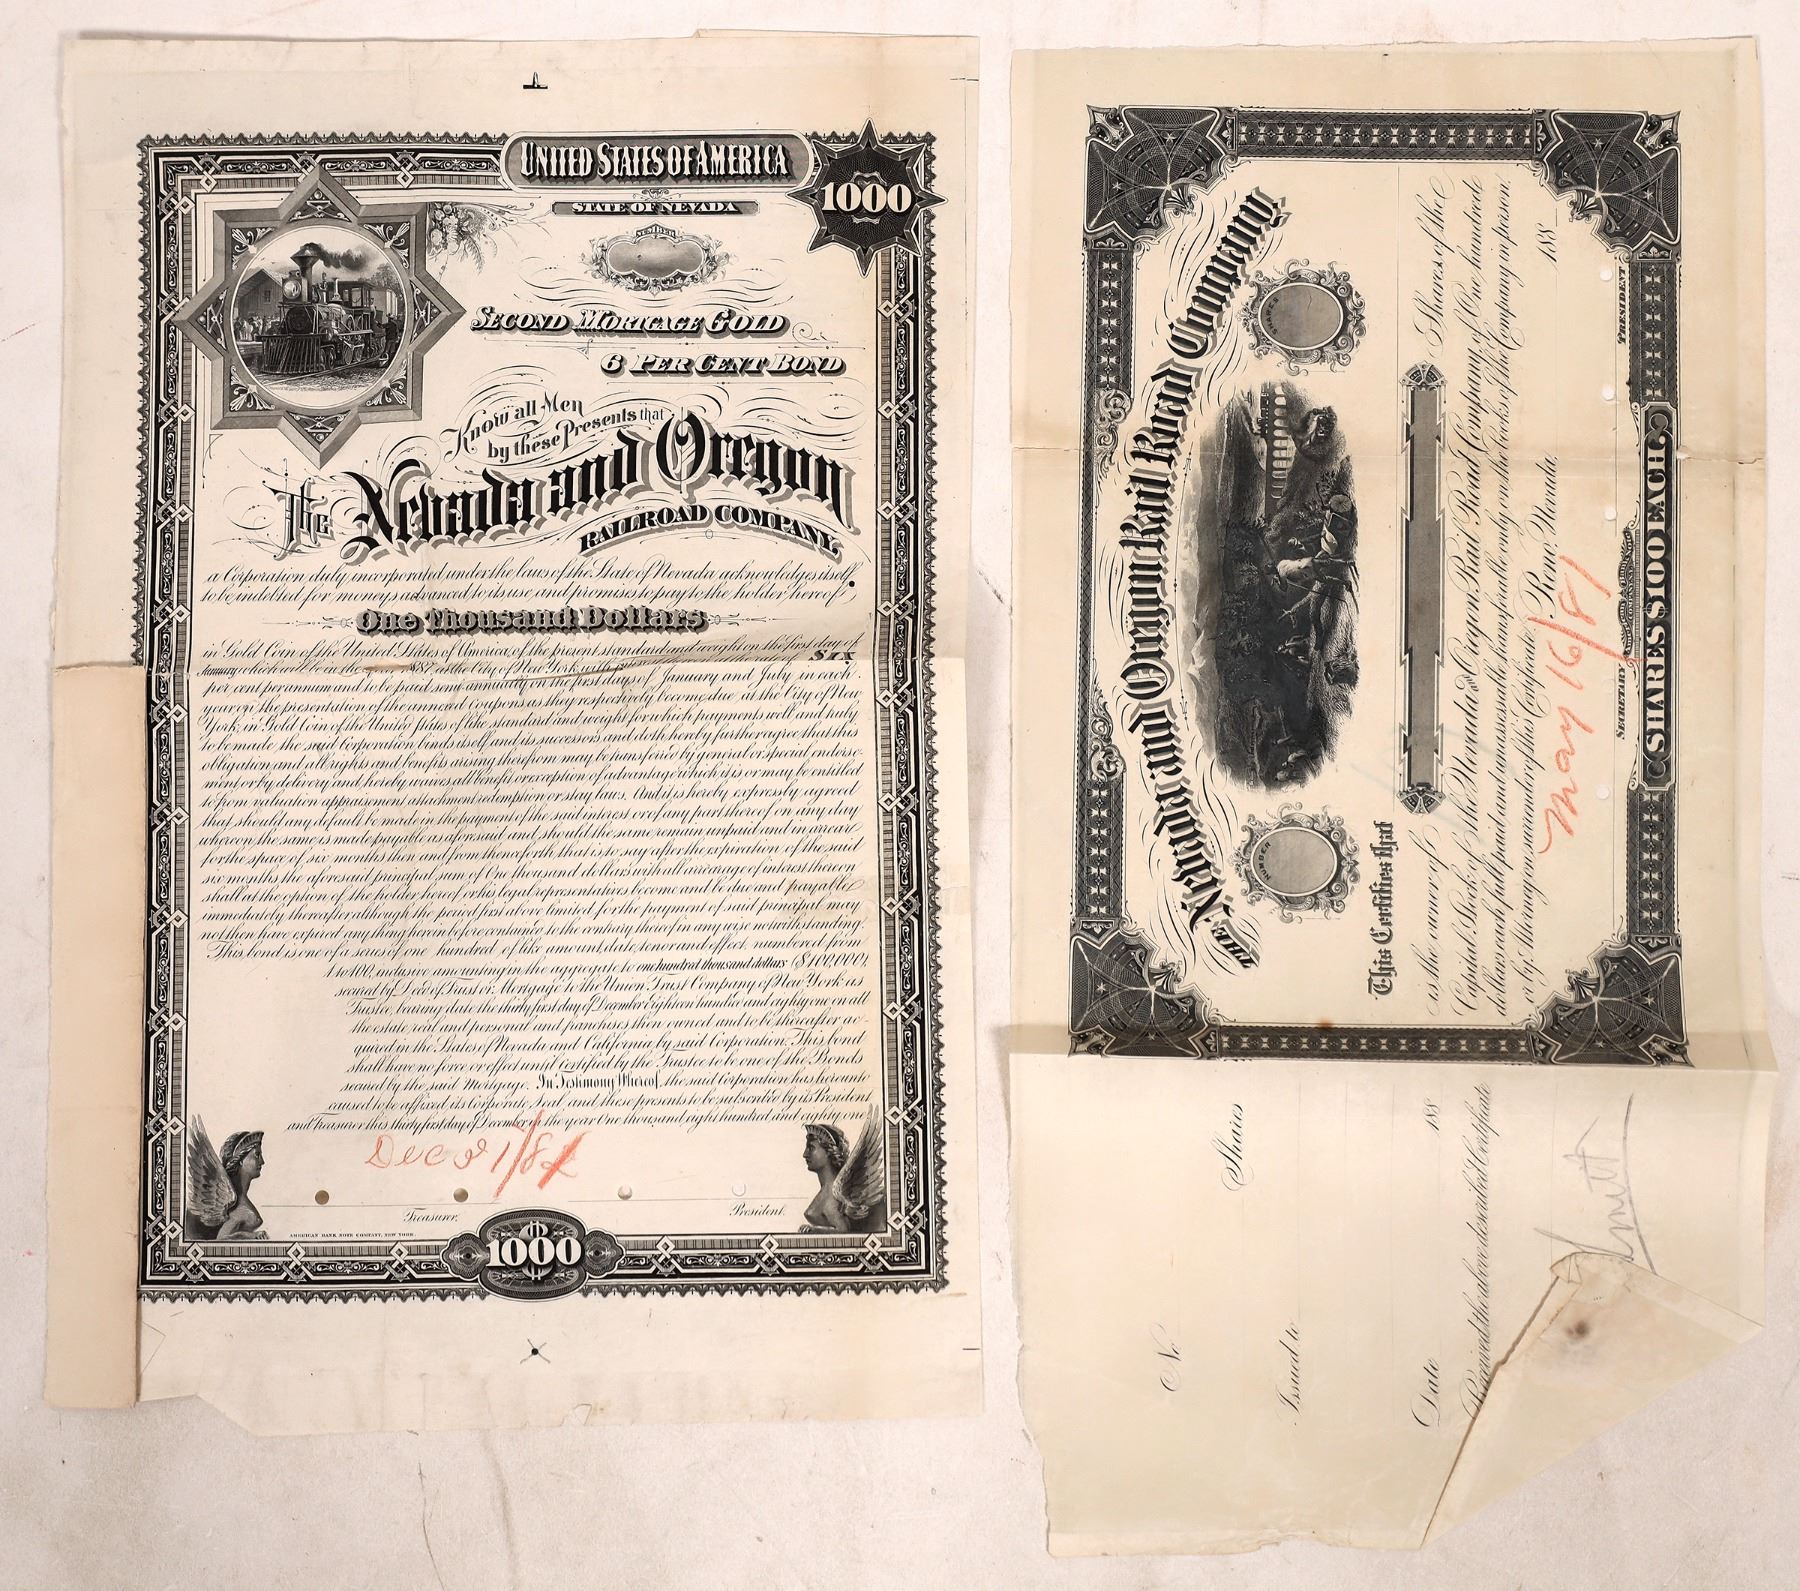 UNITED STATES OF AMERICA
1000
STATE OF NEVADA
NUMBER
SECOND MORTGAGE GOLD
6 PER CENT BOND
Know all Men
by these Presents that
The Nevada and Oregon
RAILROAD COMPANY,
a Corporation duly incorporated under the laws of the State of Nevada acknowledges itself
to be indebted for moneys advanced to its use, and promises to pay to the holder hereof
One Thousand Dollars
in Gold Coin of the United States of America, of the present standard and weight on the first day of
January which will be in the year at the City of New York, with interest thereon at the rate of SIX
per cent per annum and to be paid semi annually on the first days of January and July in each
year on the presentation of the annexed coupons as they respectively become due at the City of New
York, in Gold Coin of the United States of like standard and weight for which payments well and truly
to be made the said Corporation binds itself and its successors and doth hereby further agree that this
obligation and all rights and benefits arising therefrom may be transferred by general or special endorse-
ment or by delivery and hereby waives all benefit or exception of advantage which it is or may be entitled
to from valuation appraisement attachment redemption or stay laws. And it is hereby expressly agreed
that should any default be made in the payment of the said interest or of any part thereof on any day
whereon the same is made payable as aforesaid and should the same remain unpaid and in arrear
for the space of six months then and from thenceforth, that is to say after the expiration of the said
six months the aforesaid principal sum of One thousand dollars with all arrearage of interest thereon
shall at the option of the holder hereof or his legal representatives become and be due and payable
immediately thereafter although the period first above limited for the payment of said principal may
not then have expired any thing herein before contained to the contrary thereof in any wise notwithstanding.
This bond is one of a series of one hundred of like amount, date, tenor and effect, numbered from
1 to 100, inclusive amounting in the aggregate to one hundred thousand dollars ($100,000),
secured by Deed of Trust or Mortgage to the Union Trust Company of New York as
Trustee, bearing date the thirty first day of December Eighteen hundred and eighty one on all
the estate real and personal and franchises then owned and to be thereafter ac-
quired in the States of Nevada and California by said Corporation. This bond
shall have no force or effect until Certified by the Trustee to be one of the Bonds
secured by the said Mortgage. In Testimony Whereof, the said Corporation has hereunto
caused to be affixed its Corporate Seal and these presents to be subscribed by its President
and Treasurer this thirty first day of December in the year One thousand, eight hundred and eighty one
Dec 31/81
Treasurer.
President.
AMERICAN BANK NOTE COMPANY, NEW YORK.
1000
NUMBER
SHARES
THE Nevada and Oregon Rail Road Company
This Certifies that
is the owner of Shares of the
Capital Stock of the Nevada and Oregon Rail Road Company of One hundred
dollars each, full paid and unassessable, transferable only on the books of the Company in person
or by Attorney on surrender of this Certificate.
Reno, Nevada, 188
May 16/81
SECRETARY
PRESIDENT
SHARES $100 EACH
No. Shares
Issued to
Date 188
Received the above described Certificate
Smith